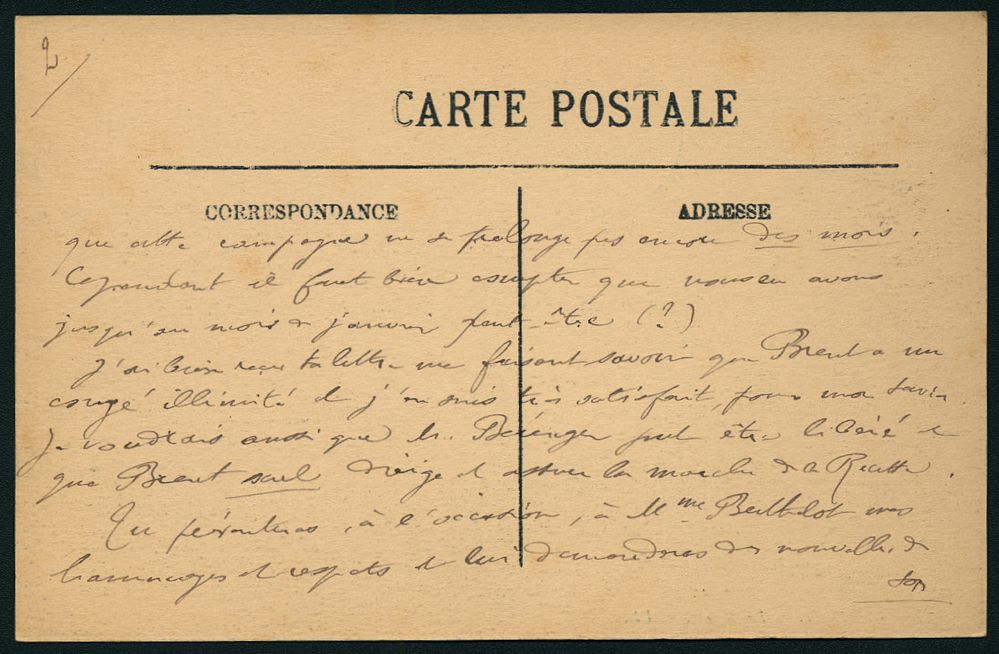 2/
CARTE POSTALE
CORRESPONDANCE
ADRESSE
que cette campagne ne se prolonge pas encore des mois.
Cependant il faut bien compter que nous en avons
jusqu'au mois de janvier peut-être (?)
J'ai bien reçu ta lettre me faisant savoir que Brent a un
congé illimité et j'en suis très satisfait, pour mon
Je voudrais aussi que M. Bérenger put être libéré et
que Brent seul dirige et assure la marche de la
Tu présenteras, à l'occasion, à Mme Berthelot mes
hommages et respects et lui demanderas des nouvelles de
son